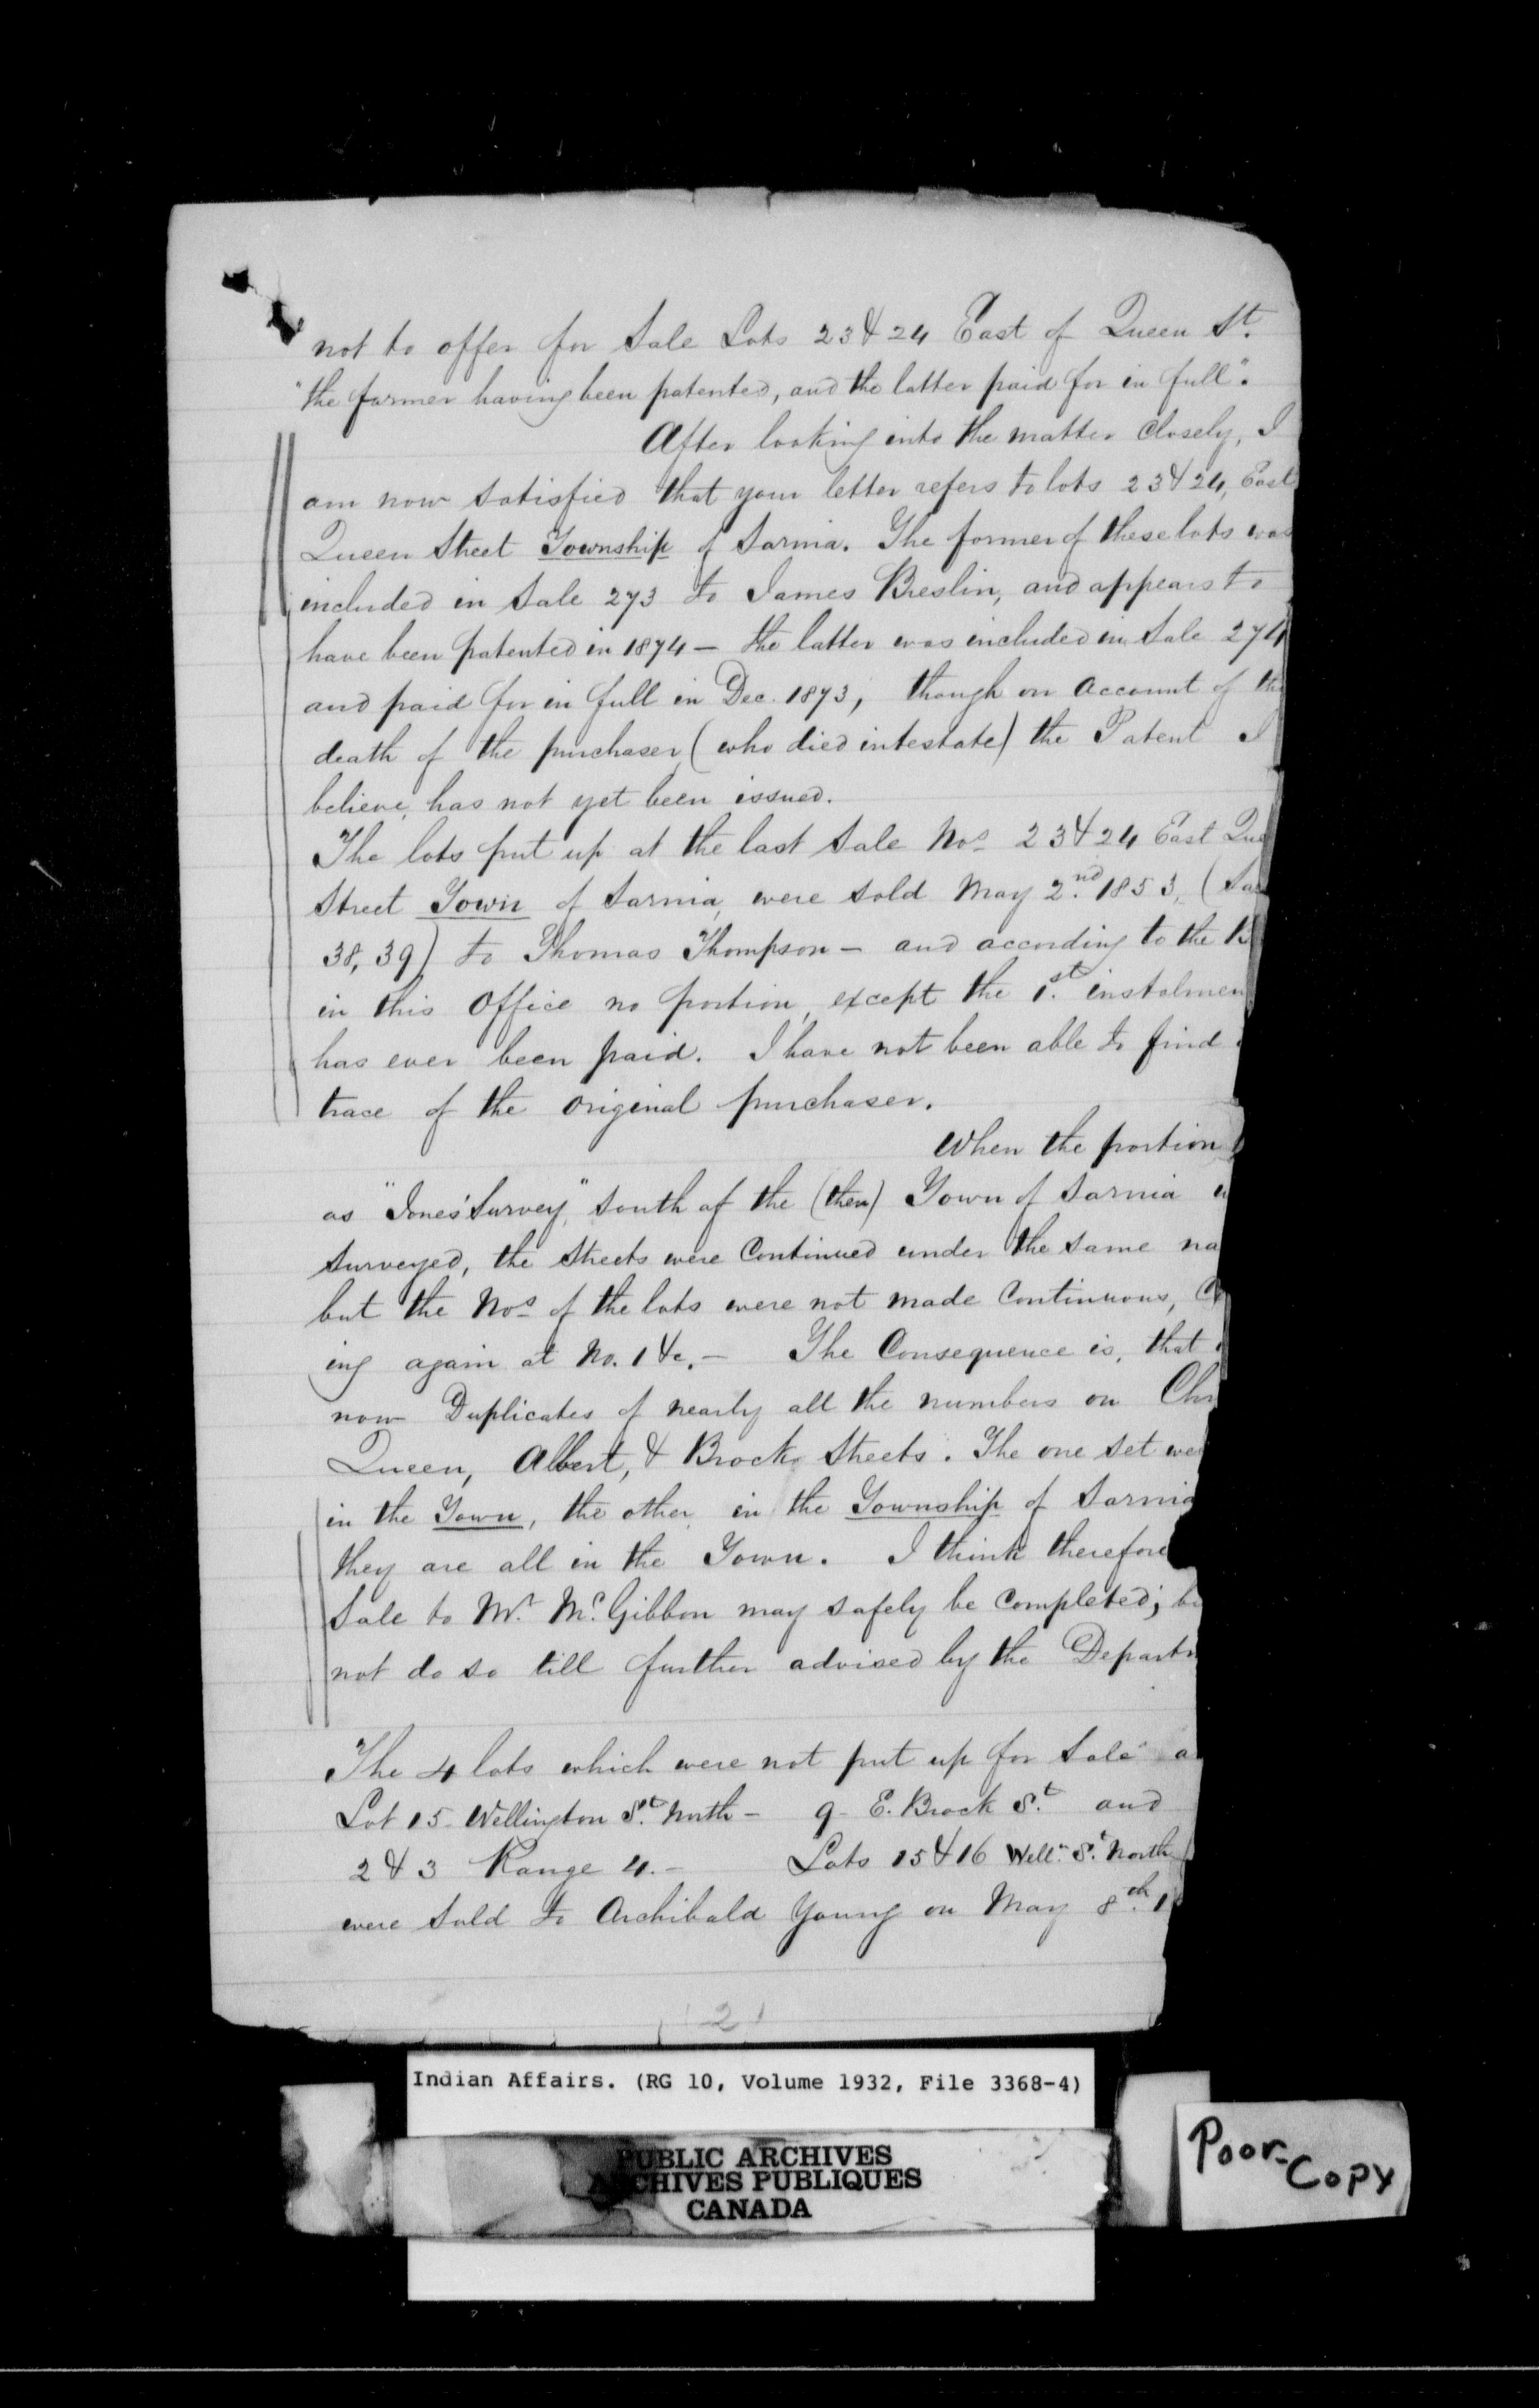 not to offer for Sale Lots 23 & 24 East of Queen St.
"the former having been patented, and the latter paid for in full".
After looking into the matter closely, I
am now satisfied that your letter refers to lots 23 & 24, East
Queen Street Township of Sarnia. The former of these lots was
included in Sale 273 to James Breslin, and appears to
have been patented in 1874 — the latter was included in Sale 274
and paid for in full in Dec. 1873, though on account of the
death of the purchaser (who died intestate) the Patent I
believe, has not yet been issued.
The lots put up at the last Sale Nos. 23 & 24 East Que
Street Town of Sarnia, were sold May 2nd. 1853, (Sa
38, 39) to Thomas Thompson — and according to the
in this Office no portion, except the 1st. instalmen
has ever been paid. I have not been able to find
trace of the original purchaser.
When the portion
as "Jones' Survey," south of the (then) Town of Sarnia
surveyed, the Streets were Continued under the same na
but the Nos. of the lots were not made Continuous, C
ing again at No. 1 &c. — The Consequence is, that
now Duplicates of nearly all the numbers on Chr
Queen, Albert, & Brock Streets. The one set we
in the Town, the other in the Township of Sarnia
they are all in the Town. I think therefore
Sale to Mr. McGibbon may safely be Completed; b
not do so till further advised by the Departm
The 4 lots which were not put up for Sale a
Lot 15 Wellington St. North — 9 E. Brock St. and
2 & 3 Range 4. — Lots 15 & 16 Well. St. North
were sold to Archibald Young on May 8th. 1
(2)
Indian Affairs. (RG 10, Volume 1932, File 3368-4)
PUBLIC ARCHIVES
ARCHIVES PUBLIQUES
CANADA
Poor
Copy